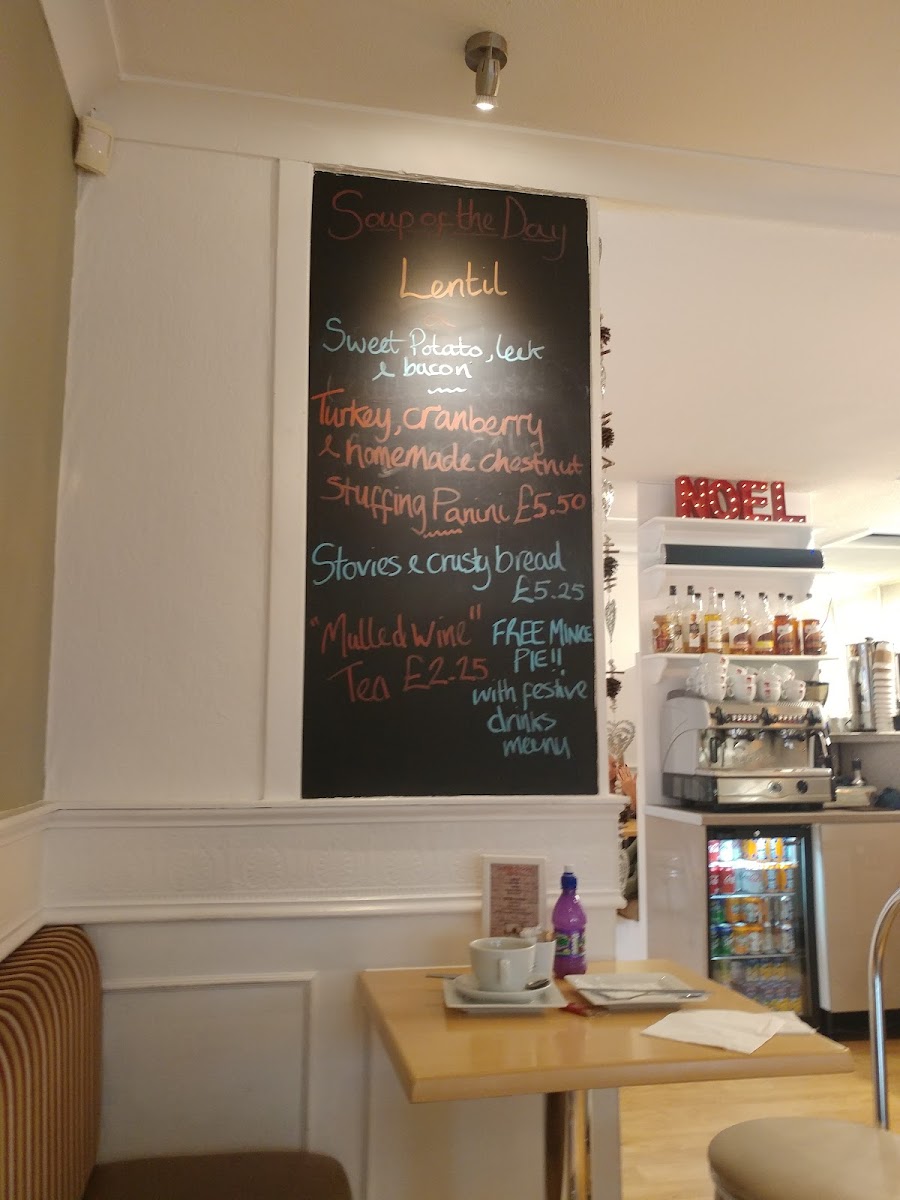 Soup of the Day
Lentil
or
Sweet Potato, leek
& bacon
Turkey, cranberry
& homemade chestnut
stuffing Panini £5.50
Stovies & crusty bread
£5.25
"Mulled Wine"
Tea £2.25
FREE MINCE
PIE!!
with festive
drinks
menu
NOEL